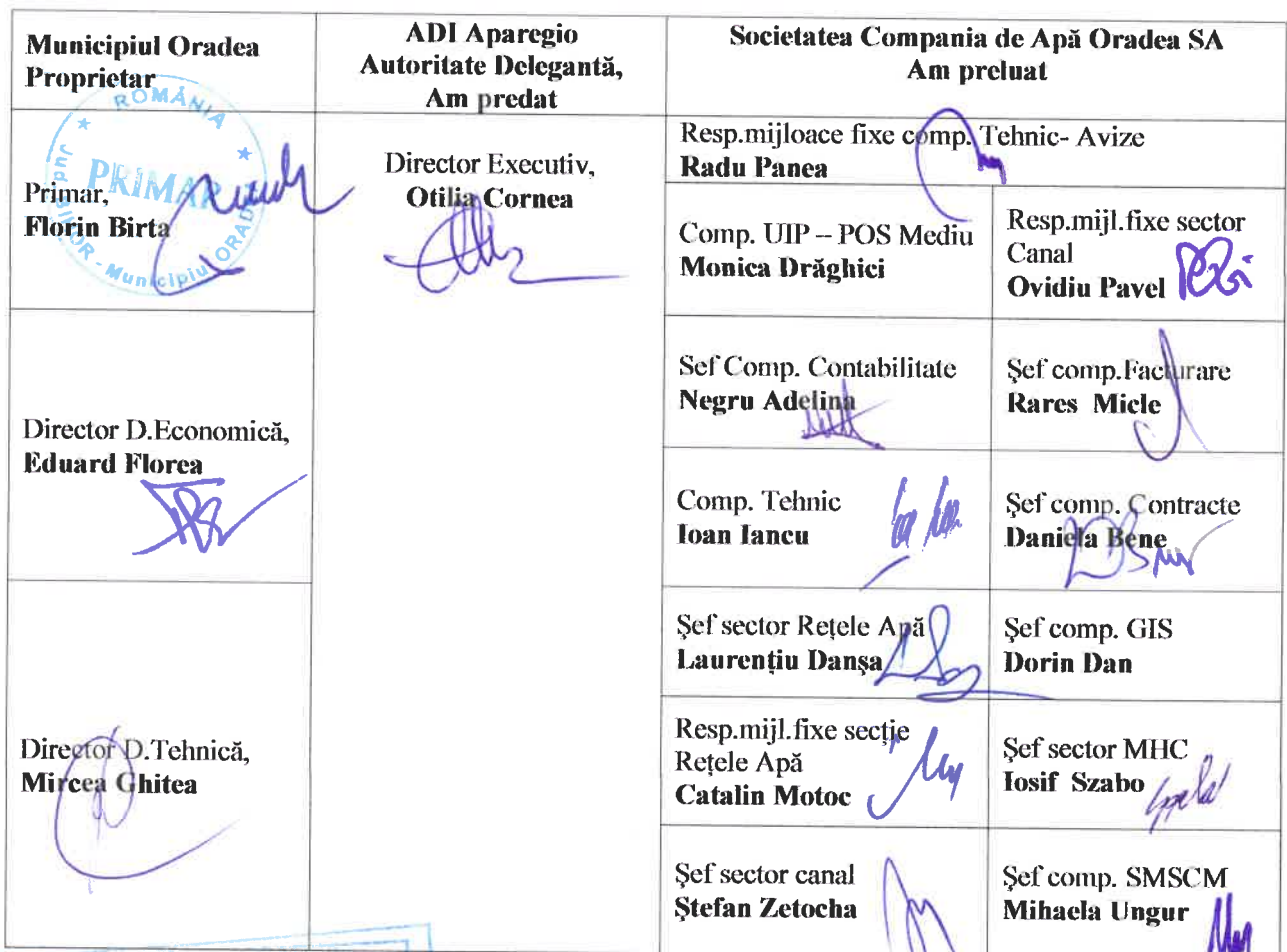 Municipiul Oradea
Proprietar
ADI Aparegio
Autoritate Delegantă,
Am predat
Societatea Compania de Apă Oradea SA
Am preluat
ROMÂNIA
PRIMAR
JUD. BIHOR - Municipiul ORADEA
Primar,
Florin Birta
Director Executiv,
Otilia Cornea
Resp.mijloace fixe comp. Tehnic- Avize
Radu Panea
Comp. UIP – POS Mediu
Monica Drăghici
Resp.mijl.fixe sector
Canal
Ovidiu Pavel
Director D.Economică,
Eduard Florea
Sef Comp. Contabilitate
Negru Adelina
Şef comp.Facturare
Rares Micle
Comp. Tehnic
Ioan Iancu
Şef comp. Contracte
Daniela Bene
Director D.Tehnică,
Mircea Ghitea
Şef sector Reţele Apă
Laurenţiu Danşa
Şef comp. GIS
Dorin Dan
Resp.mijl.fixe secţie
Reţele Apă
Catalin Motoc
Şef sector MHC
Iosif Szabo
Şef sector canal
Ştefan Zetocha
Şef comp. SMSCM
Mihaela Ungur